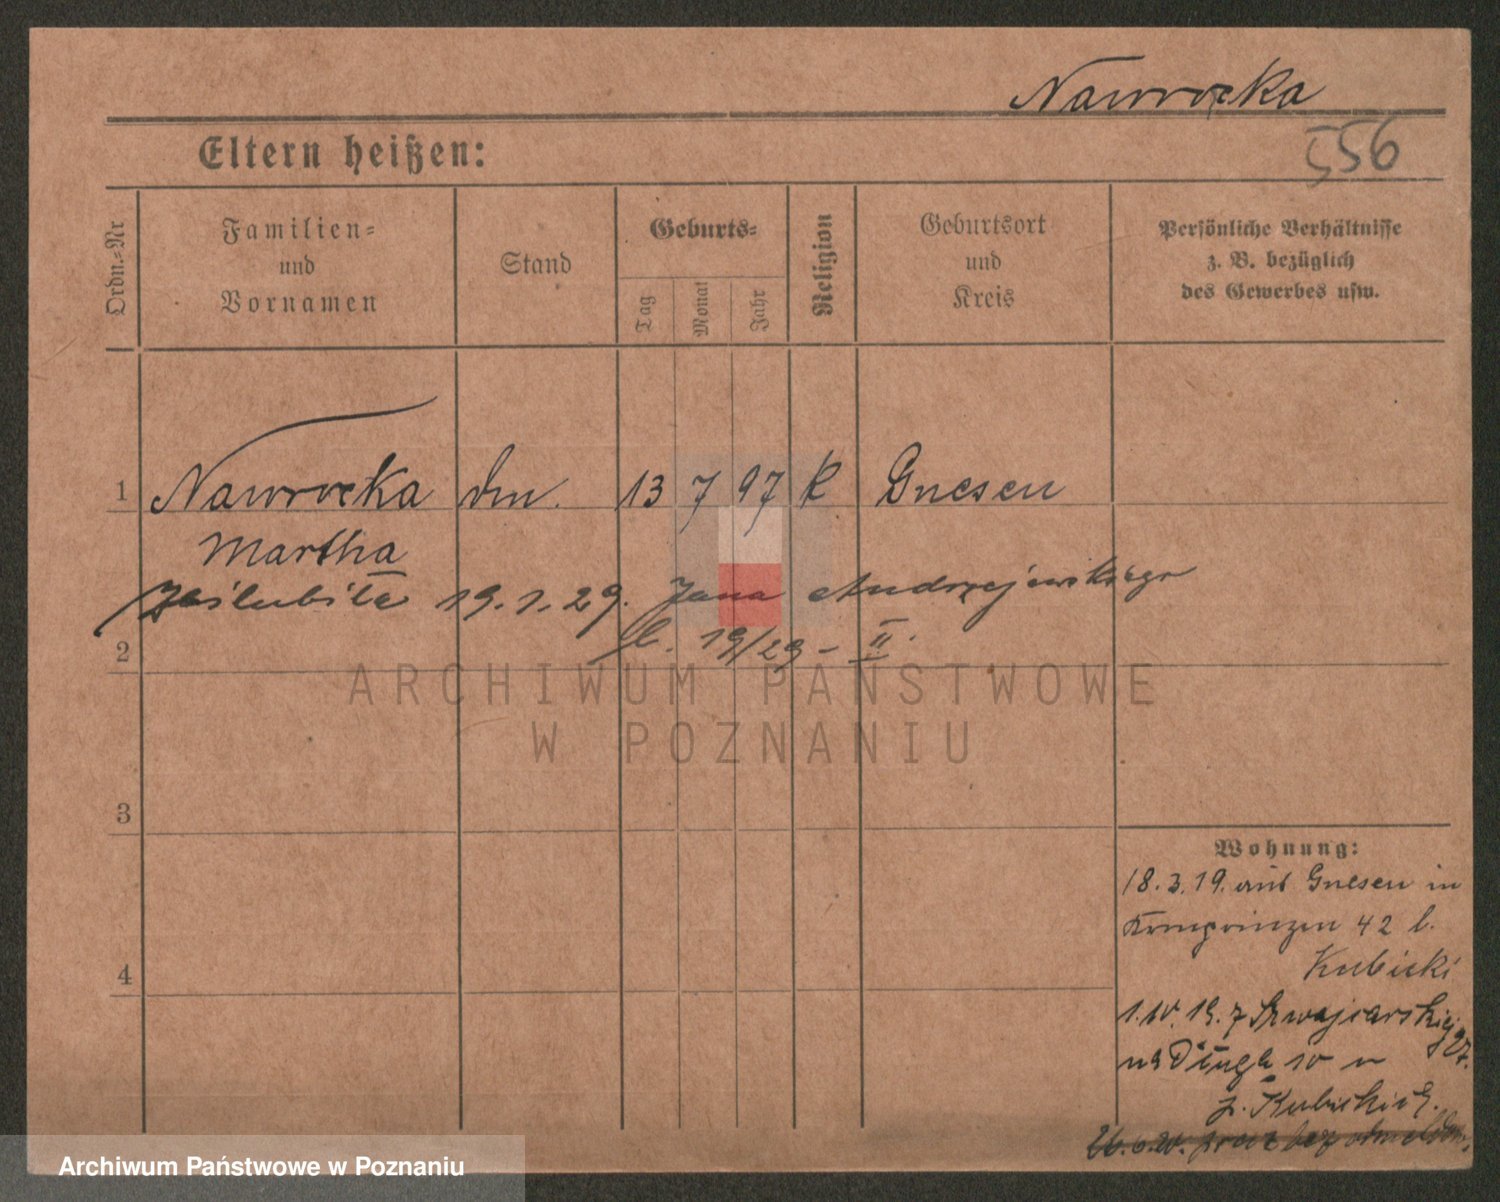 Nawrocka
556
Eltern heißen:
Ordn.-Nr
Familien-
und
Vornamen
Stand
Geburts-
Tag
Monat
Jahr
Religion
Geburtsort
und
Kreis
Persönliche Verhältnisse
z. B. bezüglich
des Gewerbes usw.
1 Nawrocka 13 7 97 K Gnesen
Martha
19.1.29. Jana Andrzejewskiego
19/29 - II.
2
ARCHIWUM PAŃSTWOWE
W POZNANIU
3
Wohnung:
18.3.19. aus Gnesen in
Kronprinzen 42 b.
Kubicki
4
1.10.19. z Szwajcarskiej
27.
na Długa 10 u
p. Kubickich.
26.6.20. precz bez
Archiwum Państwowe w Poznaniu